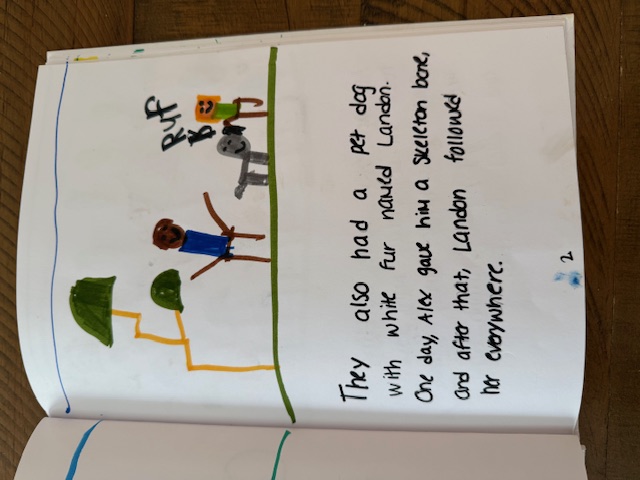 Ruf
They also had a pet dog
with white fur named Landon.
One day, Alex gave him a skeleton bone,
and after that, Landon followed
her everywhere.
2